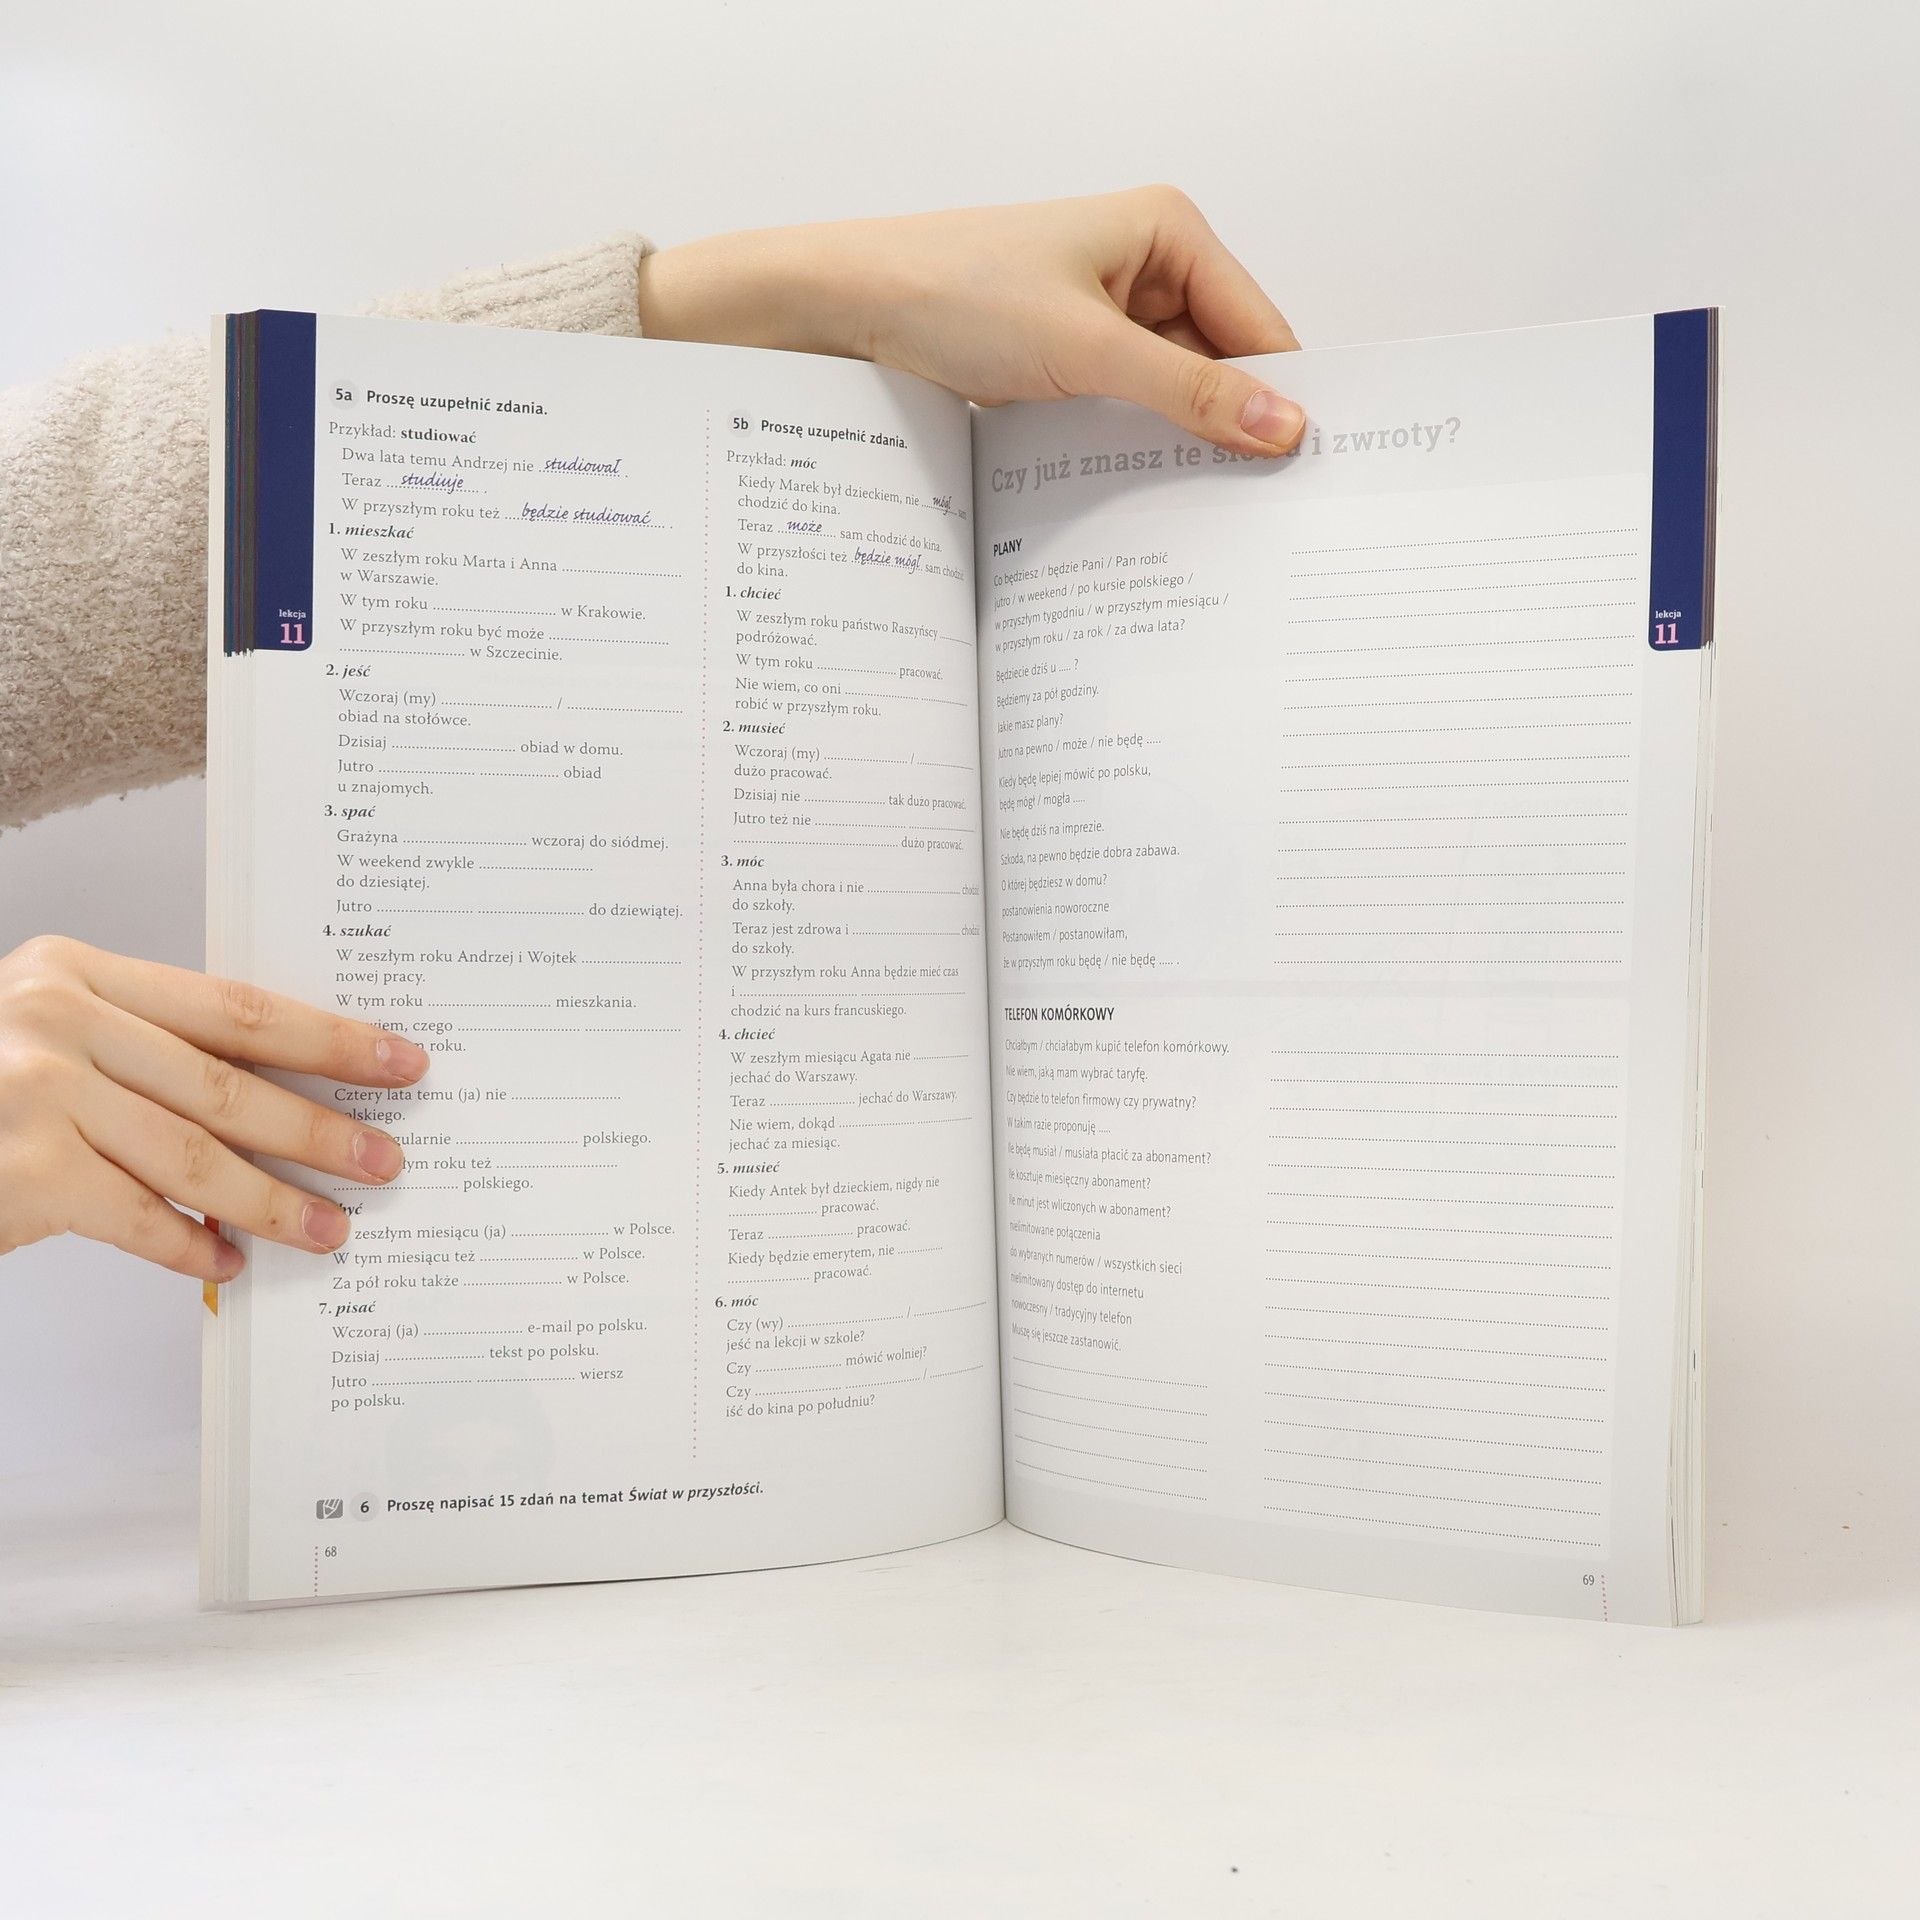 lekcja
11
5a Proszę uzupełnić zdania.
Przykład: studiować
Dwa lata temu Andrzej nie studiował .
Teraz studiuje .
W przyszłym roku też będzie studiować .
1. mieszkać
W zeszłym roku Marta i Anna
w Warszawie.
W tym roku w Krakowie.
W przyszłym roku być może
w Szczecinie.
2. jeść
Wczoraj (my) /
obiad na stołówce.
Dzisiaj obiad w domu.
Jutro obiad
u znajomych.
3. spać
Grażyna wczoraj do siódmej.
W weekend zwykle
do dziesiątej.
Jutro do dziewiątej.
4. szukać
W zeszłym roku Andrzej i Wojtek
nowej pracy.
W tym roku mieszkania.
wiem, czego
roku.
Cztery lata temu (ja) nie
polskiego.
gularnie polskiego.
łym roku też
polskiego.
być
zeszłym miesiącu (ja) w Polsce.
W tym miesiącu też w Polsce.
Za pół roku także w Polsce.
7. pisać
Wczoraj (ja) e-mail po polsku.
Dzisiaj tekst po polsku.
Jutro wiersz
po polsku.
5b Proszę uzupełnić zdania.
Przykład: móc
Kiedy Marek był dzieckiem, nie mógł sam
chodzić do kina.
Teraz może sam chodzić do kina.
W przyszłości też będzie mógł sam chodzić
do kina.
1. chcieć
W zeszłym roku państwo Raszyńscy
podróżować.
W tym roku pracować.
Nie wiem, co oni
robić w przyszłym roku.
2. musieć
Wczoraj (my) /
dużo pracować.
Dzisiaj nie tak dużo pracować.
Jutro też nie
dużo pracować.
3. móc
Anna była chora i nie chodzić
do szkoły.
Teraz jest zdrowa i chodzić
do szkoły.
W przyszłym roku Anna będzie mieć czas
i
chodzić na kurs francuskiego.
4. chcieć
W zeszłym miesiącu Agata nie
jechać do Warszawy.
Teraz jechać do Warszawy.
Nie wiem, dokąd
jechać za miesiąc.
5. musieć
Kiedy Antek był dzieckiem, nigdy nie
pracować.
Teraz pracować.
Kiedy będzie emerytem, nie
pracować.
6. móc
Czy (wy) /
jeść na lekcji w szkole?
Czy mówić wolniej?
Czy /
iść do kina po południu?
6 Proszę napisać 15 zdań na temat Świat w przyszłości.
68
Czy już znasz te i zwroty?
PLANY
Co będziesz / będzie Pani / Pan robić
jutro / w weekend / po kursie polskiego /
w przyszłym tygodniu / w przyszłym miesiącu /
w przyszłym roku / za rok / za dwa lata?
Będziecie dziś u ..... ?
Będziemy za pół godziny.
Jakie masz plany?
Jutro na pewno / może / nie będę .....
Kiedy będę lepiej mówić po polsku,
będę mógł / mogła .....
Nie będę dziś na imprezie.
Szkoda, na pewno będzie dobra zabawa.
O której będziesz w domu?
postanowienia noworoczne
Postanowiłem / postanowiłam,
że w przyszłym roku będę / nie będę ..... .
TELEFON KOMÓRKOWY
Chciałbym / chciałabym kupić telefon komórkowy.
Nie wiem, jaką mam wybrać taryfę.
Czy będzie to telefon firmowy czy prywatny?
W takim razie proponuję .....
Ile będę musiał / musiała płacić za abonament?
Ile kosztuje miesięczny abonament?
Ile minut jest wliczonych w abonament?
nielimitowane połączenia
do wybranych numerów / wszystkich sieci
nielimitowany dostęp do internetu
nowoczesny / tradycyjny telefon
Muszę się jeszcze zastanowić.
lekcja
11
69